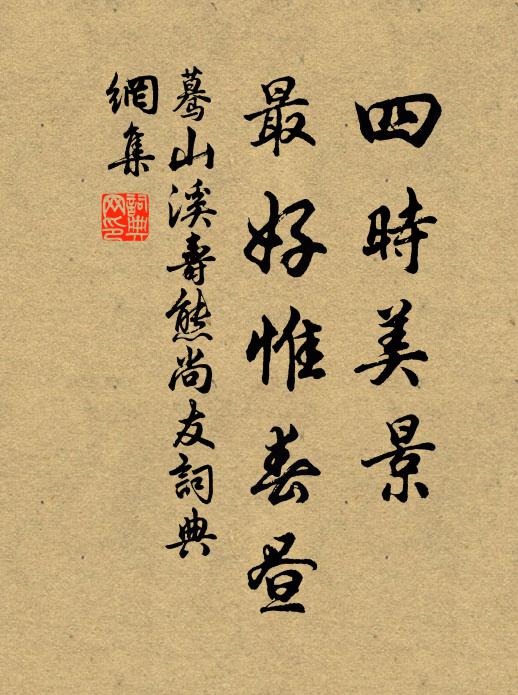 四時美景
最好惟春晝
驀山溪壽熊尚友詞典
網集
詞典網印